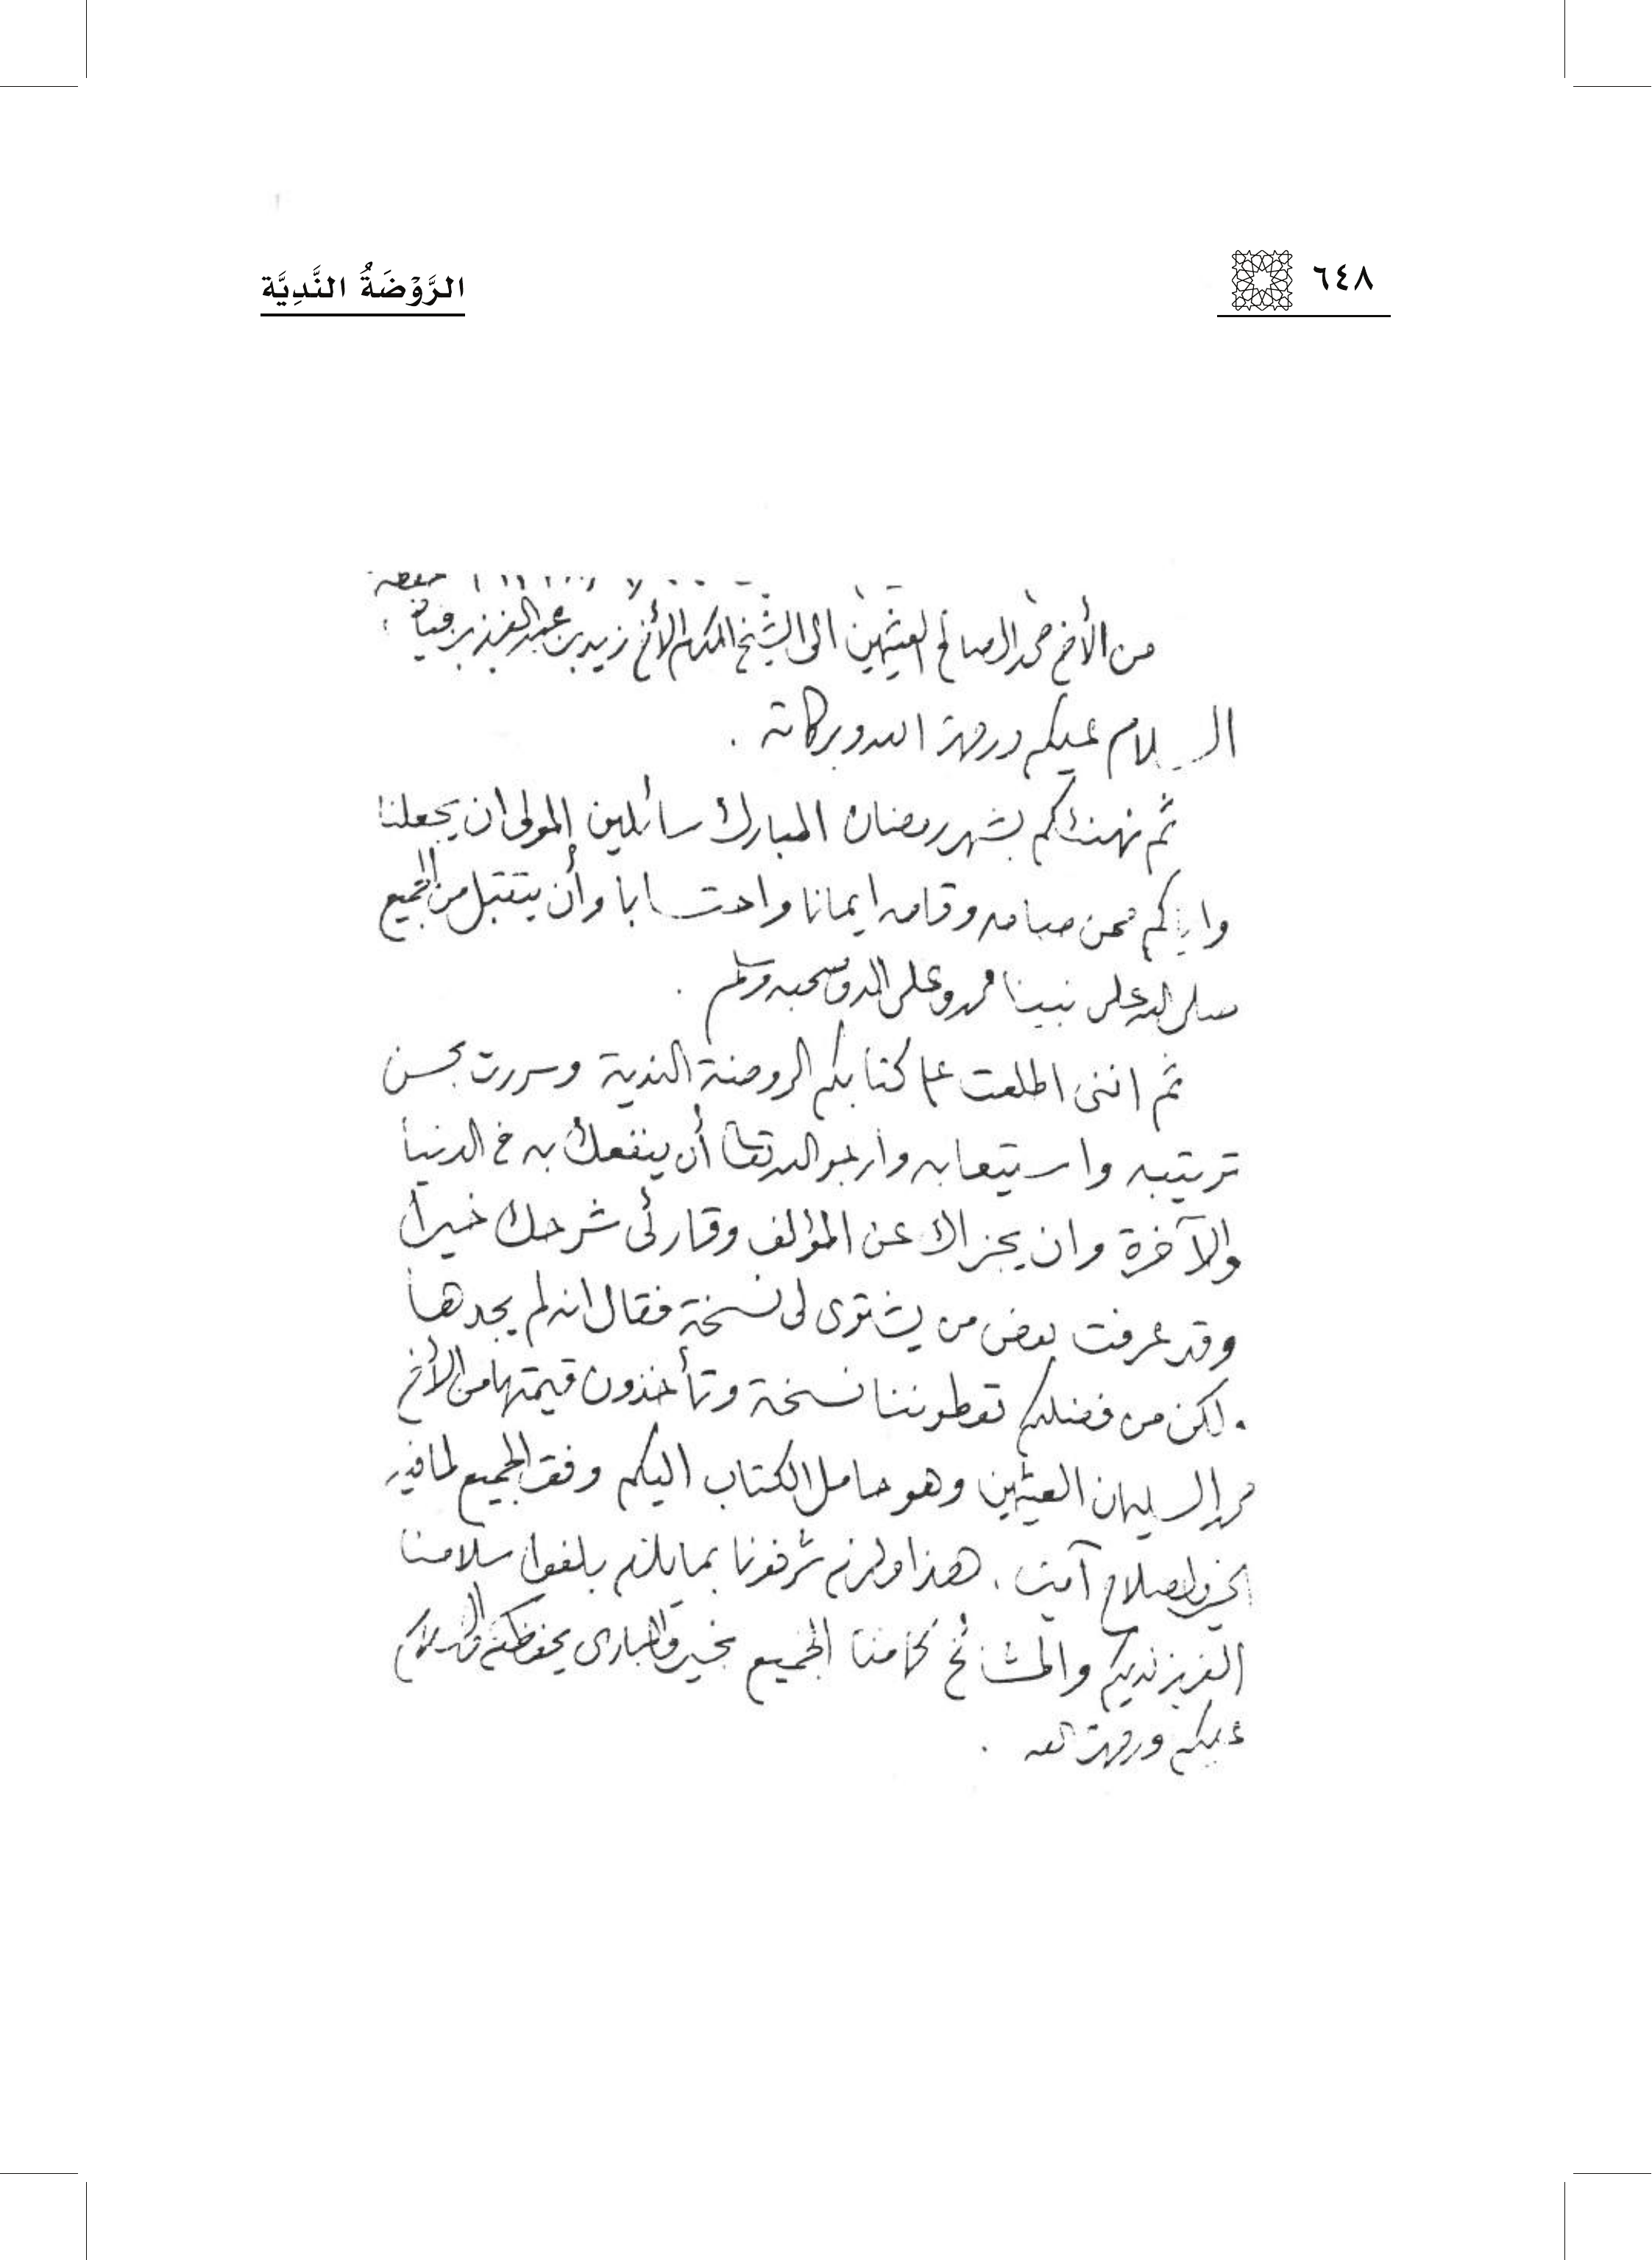 ٦٤٨
الرَّوْضَةُ النَّدِيَّة
من الأخ محمد الصالح العثيمين الى الشيخ المكرم الأخ زيد بن عبدالعزيز بن فياض
السلام عليكم ورحمة الله وبركاته .
ثم نهنئكم بشهر رمضان المبارك سائلين المولى ان يجعلنا
واياكم ممن صامه وقامه ايمانا واحتسابا وأن يتقبل من الجميع
صلى الله على نبينا محمد وعلى آله وصحبه وسلم .
ثم انني اطلعت على كتابكم الروضة الندية وسررت بحسن
ترتيبه واستيعابه وأرجو الله تعالى أن ينفعك به في الدنيا
والآخرة وان يجزاك عن المؤلف وقارئى شرحك خيراً
وقد عرفت بعض من يشترى لى نسخة فقال انه لم يجدها
. لكن من فضلكم تعطوننا نسخة وتأخذون قيمتها من الأخ
محمد السليمان العثيمين وهو حامل الكتاب اليكم وفق الجميع لما فيه
الخير والصلاح آمين . هذا ولازم شرفونا بما يلزم بلغوا سلامنا
العزيز لديكم والمشائخ كما منا الجميع بخير والبارى يحفظكم والسلام
عليكم ورحمة الله .